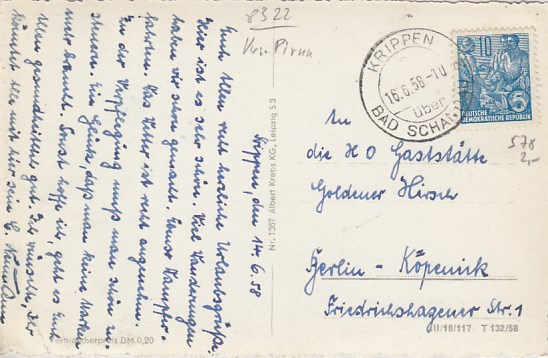 8322
Krs. Pirna
Krippen, den 14.6.58
Euch allen recht herzliche Urlaubsgrüße.
Hier ist es sehr schön. Viel Wanderungen
haben wir schon gemacht. Sonst Dampfer-
fahrten. Das Wetter ist recht angenehm.
In der Verpflegung muß man schon zu
setzen. Ein Glück, daß man keine Marken
mehr braucht. Sonst hoffe ich, geht es Euch
allen gesundheitlich gut. Ich wünsche, Ihr
könntet alle mit hier sein. E.
Verbraucherpreis DM 0,20
Nr. 1307 Albert Krebs KG, Leipzig S 3
KRIPPEN
16.6.58-10
über
BAD SCHAN
10
5
DEUTSCHE
DEMOKRATISCHE REPUBLIK
578
2,-
An
die HO Gaststätte
Goldener Hirsch
Berlin-Köpenick
Friedrichshagener Str. 1
III/18/117 T 132/58